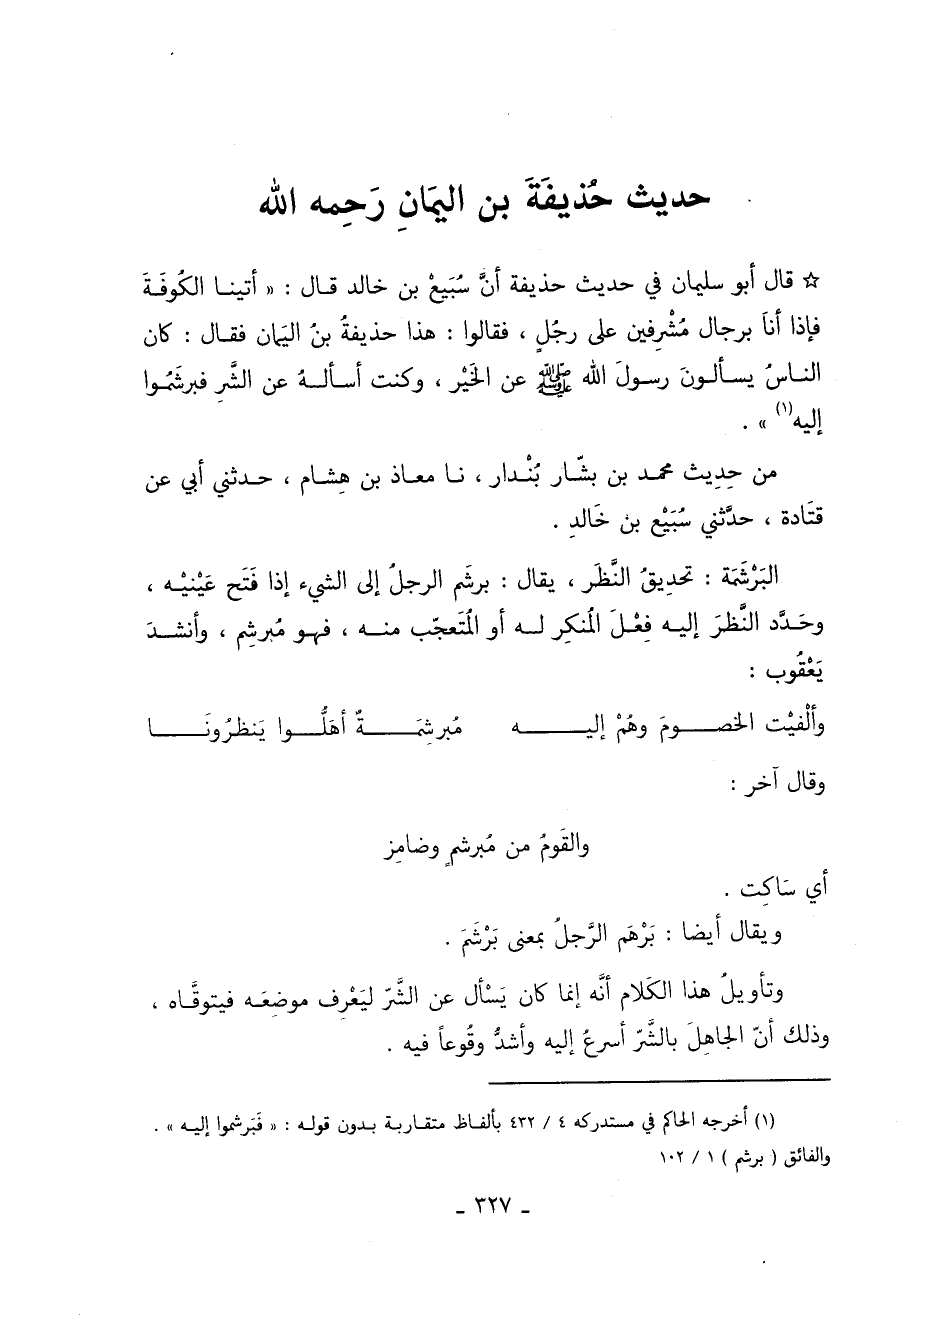 حديث حُذيفَةَ بن اليمَانِ رَحِمه الله
☆ قال أبو سليمان في حديث حذيفة أنَّ سُبَيعْ بن خالد قـال : « أتينـا الكُوفَـةَ
فإذا أناَ برجال مُشْرِفين على رجُلٍ ، فقالوا : هذا حذيفةُ بنُ اليَمان فقـال : كان
النـاسُ يسـألـونَ رسـولَ الله ﷺ عن الخَيْر ، وكنت أسـألـهُ عن الشَّر فبرشَمُوا
إليه(١) » .
من حِديث محمد بن بشّار بُنْدار ، نـا معـاذ بن هِشام ، حـدثني أبي عن
قتَادة ، حدَّثني سُبَيْع بن خَالدٍ .
البَرْشَمَة : تحديقُ النَّظَر ، يقال : برشَم الرجلُ إلى الشيء إذا فَتَح عَيْنيْـه ،
وحَـدَّد النَّظرَ إليـه فِعْـلَ المُنكِر لـه أو المُتَعجّب منـه ، فهـو مُبرشِم ، وأنشـدَ
يَعْقُوب :
وألْفيْت الخصـومَ وهُمْ إليـه مُبرشِمَـةٌ أهَلُّـوا يَنظرُونَـا
وقال آخر :
والقَومُ من مُبرشمٍ وضامِز
أي سَاكِت .
ويقال أيضا : بَرْهَم الرَّجلُ بمعنى بَرْشَمَ .
وتأويلُ هذا الكَلام أنَّه إنما كان يَسْأل عن الشَّرّ ليَعْرِف موضعَـه فيتوقَّـاه ،
وذلك أنّ الجاهِلَ بالشَّرّ أسرعُ إليه وأشدُّ وقُوعاً فيه .
(١) أخرجه الحاكم في مستدركه ٤ / ٤٣٢ بألفاظ متقـاربـة بـدون قولـه : « فَبَرشموا إليـه » .
والفائق ( برشم ) ١ / ١٠٢
ـ ٣٢٧ ـ